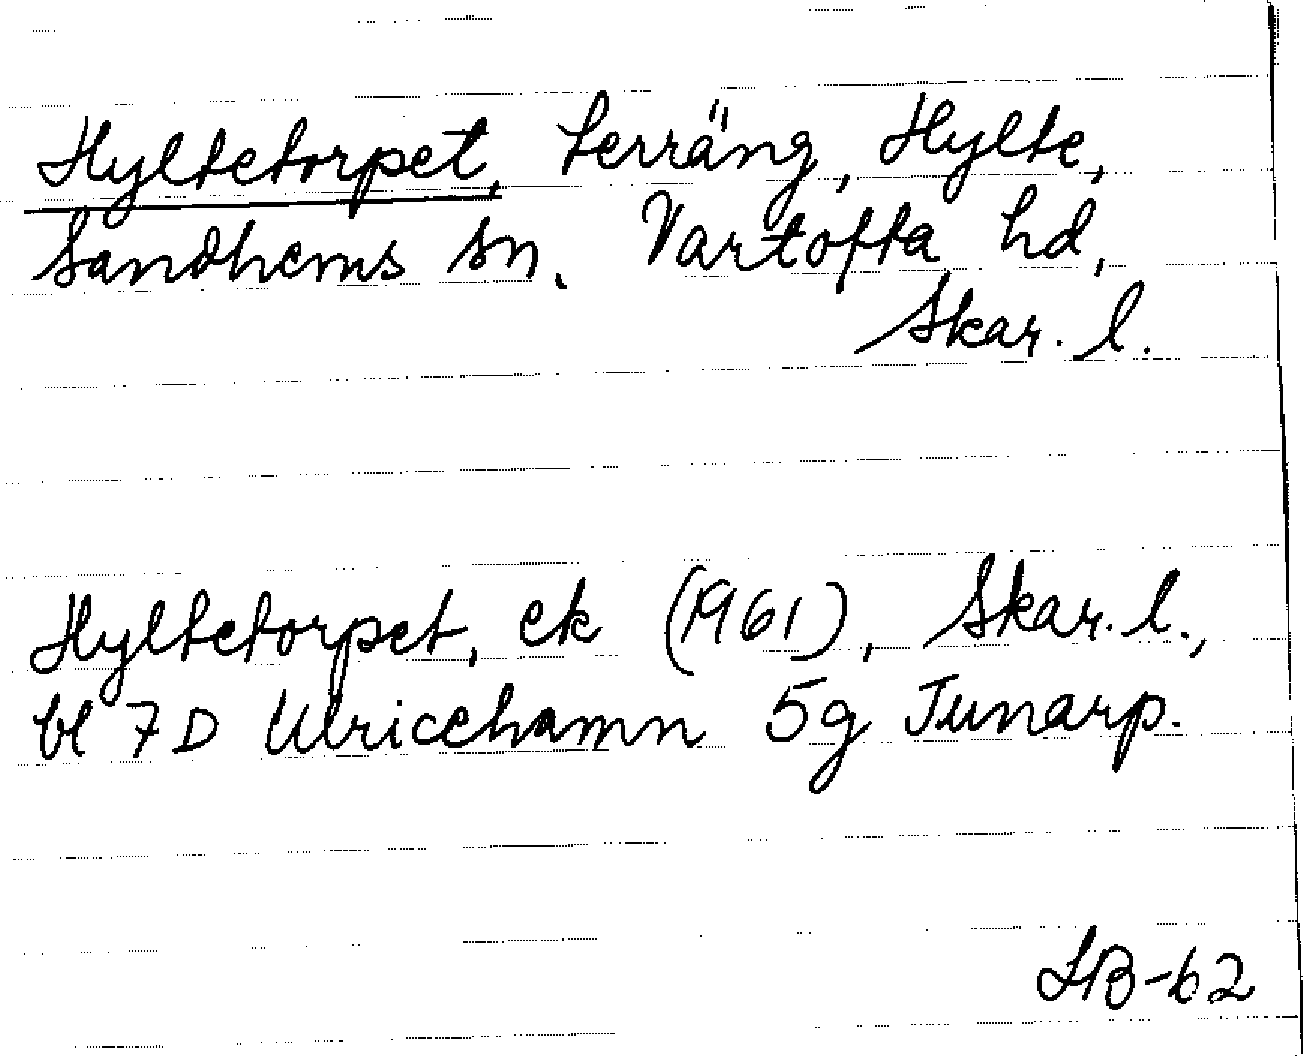 Hyltetorpet, terräng, Hylte,
Sandhems sn. Vartofta hd,
Skar. l.
Hyltetorpet, ek (1961), Skar. l.,
bl 7D Ulricehamn 5g Junarp.
LB-62